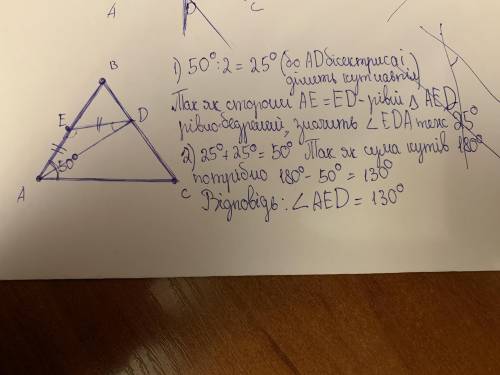 A
D
C
B
E
D
50°
A
C
1) 50° : 2 = 25° (бо AD бісектриса і
ділить кут навпіл)
Так як сторони AE = ED - рівні △ AED
рівнобедрений, значить ∠EDA теж 25°
2) 25° + 25° = 50° Так як сума кутів 180°
потрібно 180° - 50° = 130°
Відповідь: ∠AED = 130°